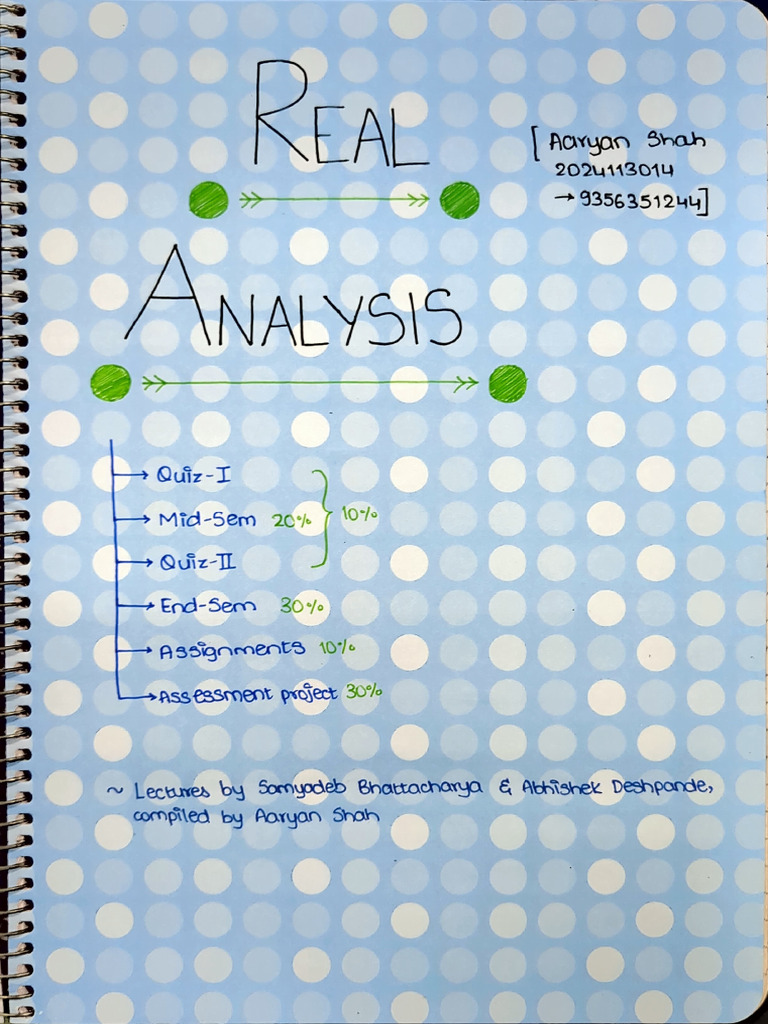 REAL
[ Aaryan Shah
2024113014
→ 9356351244]
ANALYSIS
→ Quiz-I
→ Mid-Sem 20% } 10%
→ Quiz-II
→ End-Sem 30%
→ Assignments 10%
→ Assessment project 30%
~ Lectures by Samyadeb Bhattacharya & Abhishek Deshpande,
compiled by Aaryan Shah